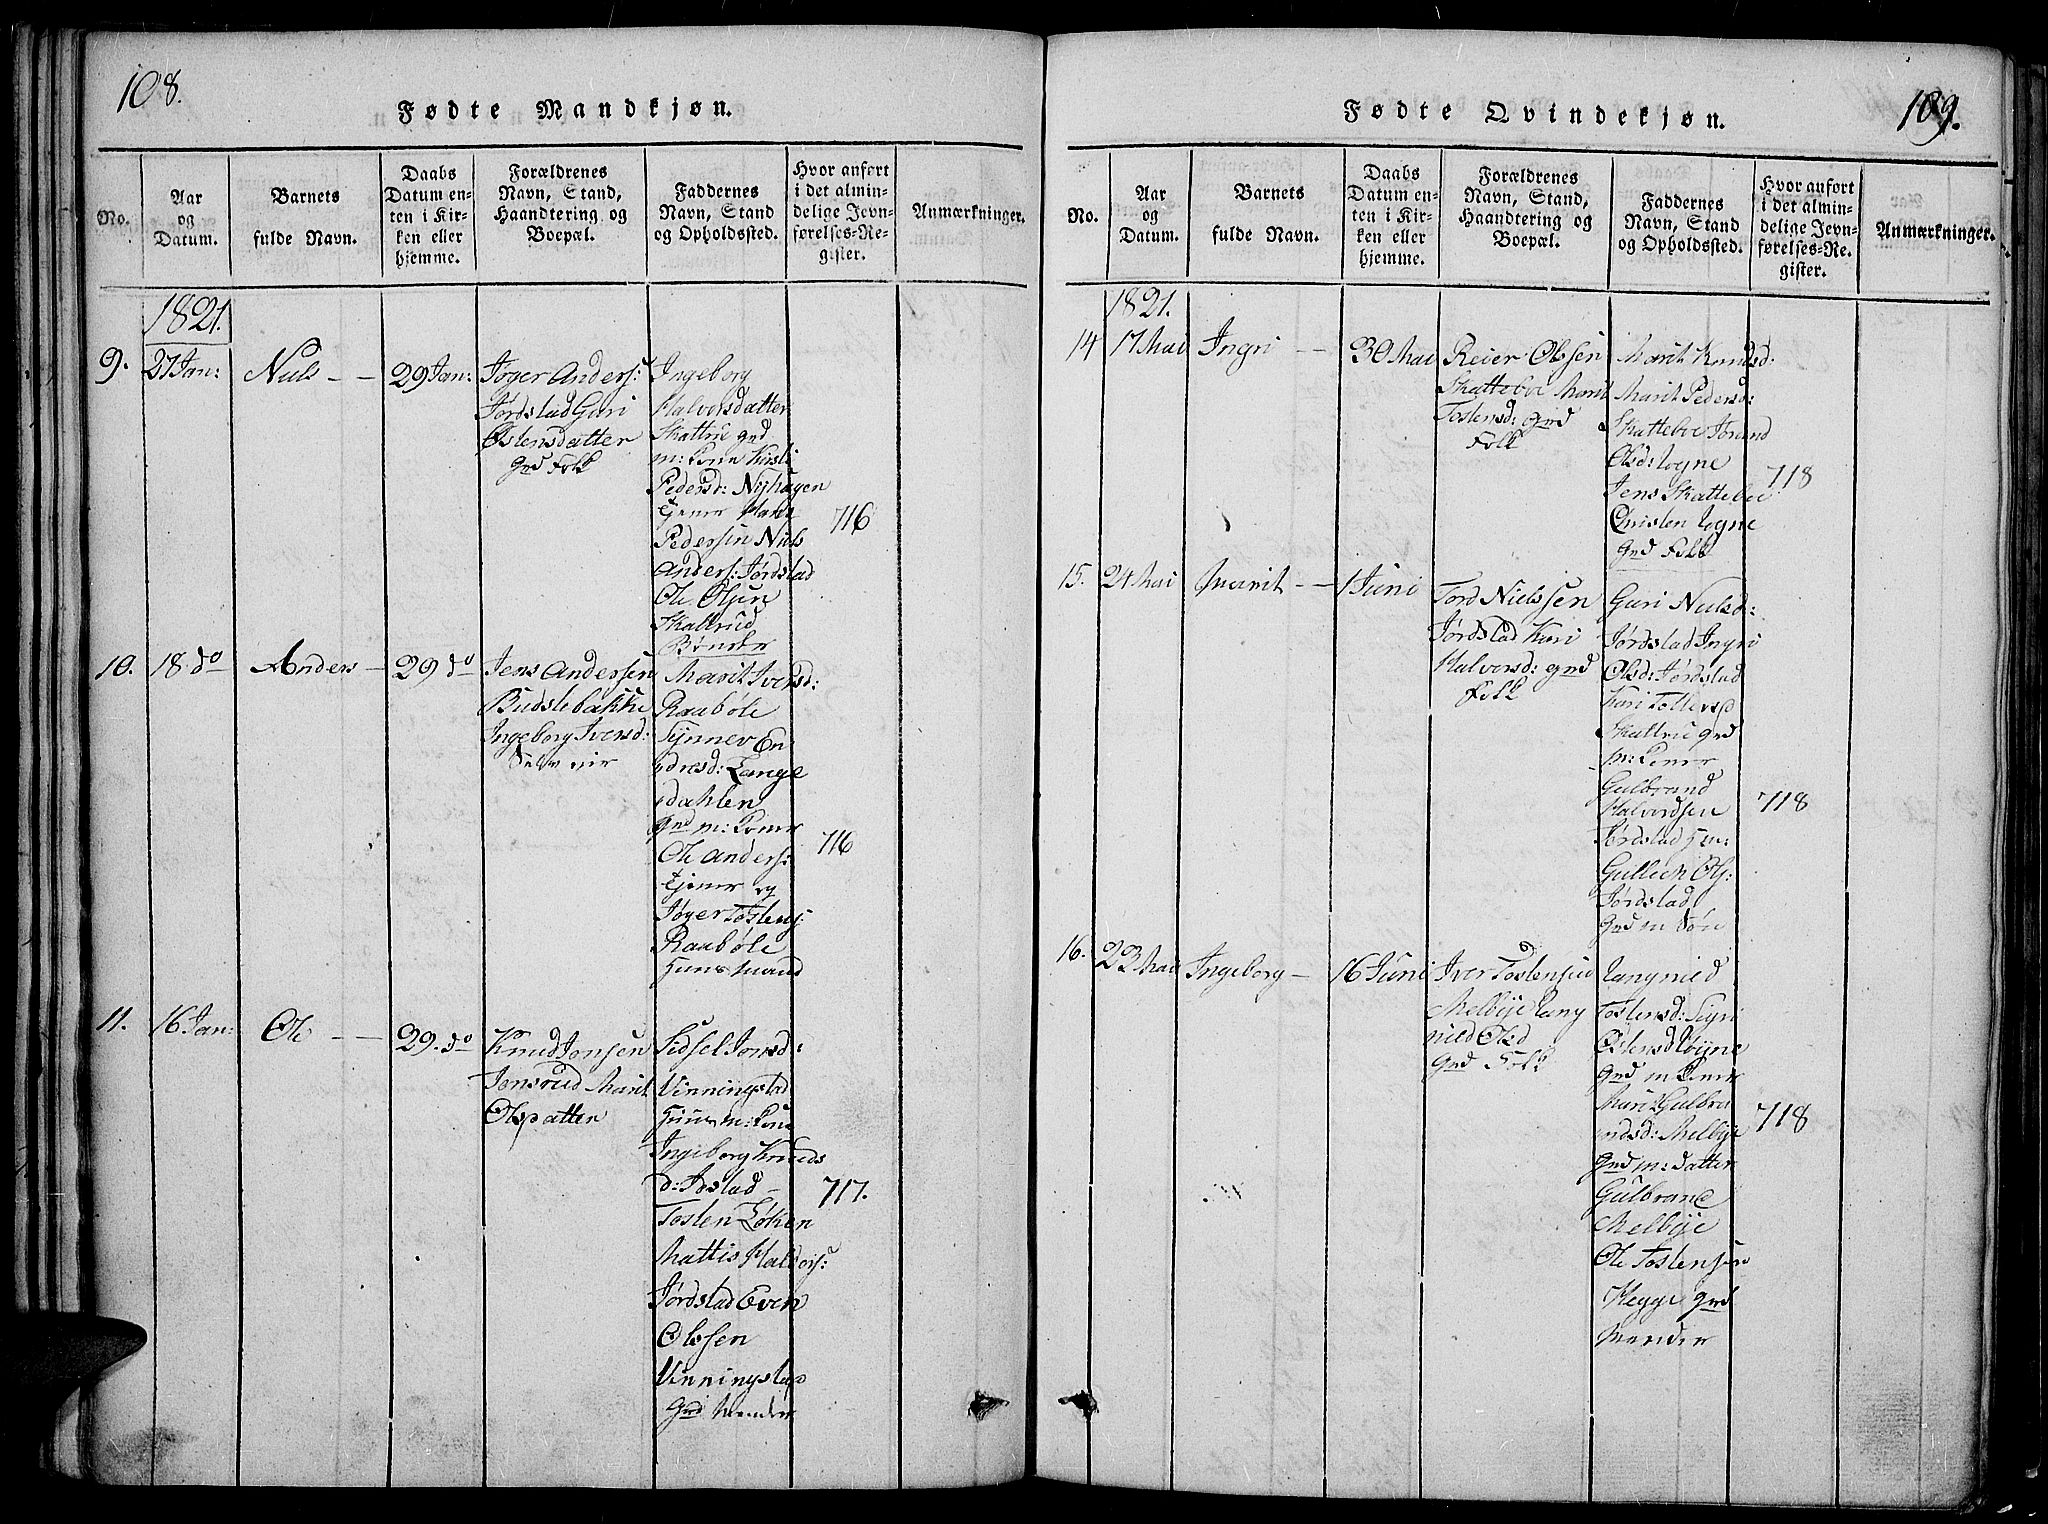 108.
Fødte Mandkjøn.
No.
Aar
og
Datum.
Barnets
fulde Navn.
Daabs
Datum en-
ten i Kir-
ken eller
hjemme.
Forældrenes
Navn, Stand,
Haandtering og
Boepæl.
Faddernes
Navn, Stand
og Opholdssted.
Hvor anført
i det almin-
delige Jevn-
førelses-Re-
gister.
Anmærkninger.
1821.
9. 27 Jan: Niels - - 29 Jan:
Jøger Anders:
Jørdstad Guri
Østensdatter
Grd Folk
Ingeborg
Halvorsdatter
Skattrue grd
m: Kone Kirsti
Pedersd: Nyhagen
tjener Hans
Pedersen Niels
Anders: Jørdstad
Ole Olsen
Skattrud
Bønder
716
10. 18 do Anders - 29 do
Jens Andersen
Budslebakke
Ingeborg Iversd:
Marit Iversd:
Raabøle
Synnev En
dresd: Lange
dahlen
Grd m: Koner
Ole Anders:
tjener og
Jøger Tostens:
Raabøle
Huusmænd
716
11. 16 Jan: Ole - - 29. do
Knud Jonsen
Jonsrud Marit
Olsdatter
Sidsel Jonsd:
Vinningstad
Huusm: Kone
Ingeborg Knuds
d: Jostad -
Tosten Løken
Mattis Halvors:
Jørdstad Even
Olssen
Vinningstad
Grd Mænder
717.
109.
Fødte Qvindekjøn.
No.
Aar
og
Datum.
Barnets
fulde Navn.
Daabs
Datum en-
ten i Kir-
ken eller
hjemme.
Forældrenes
Navn, Stand,
Haandtering og
Boepæl.
Faddernes
Navn, Stand
og Opholdssted.
Hvor anført
i det almin-
delige Jevn-
førelses-Re-
gister.
Anmærkninger.
1821.
14 17 Mai Ingri - - 30 Mai
Reier Olssen
Skatteboe Marit
Tostensd: Grd
Folk
Marit Knudsd:
Marit Pedersd:
Skatteboe Jørand
Olsd: Logne
Jens Skatteboe
Christen Logne
Grd Folk
718
15. 24 Mai Marit - - 1 Juni
Tord Nielssen
Jørdstad Kari
Halvorsd: grd
Folk
Guri Nielsd:
Jørdstad Ingri
Olsd: Jørdstad
Kari Tollefsd
Skattrue grd
m: Koner
Gulbrand
Halvordsen
Jørdstad
Gullich Ols:
Jørdstad
Grd m Søn
718
16. 23 Mai Ingeborg - 16 Juni
Iver Tostensen
Melbye Lang
nied Olsd
Grd Folk
Langnied
Tostensd: Sigri
Østensd Løyne
Grd m Koner
Mari Gulbra
ndsd: Melbye
Grd m: Datter
Gulbrand
Melbye
Ole Tostensen
Hegge Grd
Mænder
718